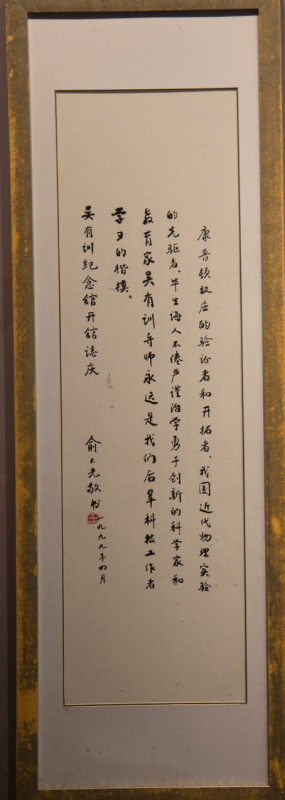 康普顿效应的验证者和开拓者、我国近代物理实验
的先驱者、毕生诲人不倦严谨治学勇于创新的科学家和
教育家吴有训导师永远是我们后辈科技工作者
学习的楷模。
吴有训纪念馆开馆志庆
俞大光敬书
一九九九年四月